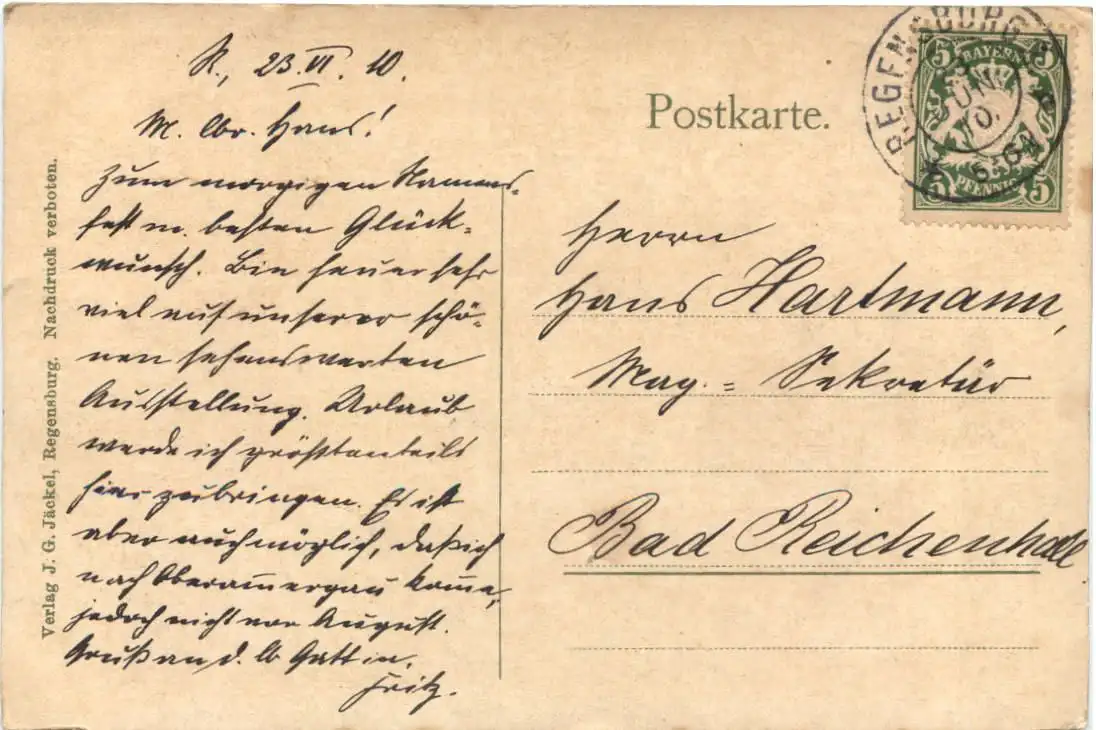 R., 23. VI. 10.
M. lbr. Hans!
Zum morgigen Namens-
fest m. besten Glück-
wunsch. Bin heuer sehr
viel auf unserer schö-
nen sehenswerten
Ausstellung. Urlaub
werde ich größtenteils
hier zubringen. Es ist
aber auch möglich, daß ich
nach Oberam̄ergau kom̄e,
jedoch nicht vor August.
Gruß an d. lb Gattin.
Fritz.
Verlag J. G. Jäckel, Regensburg. Nachdruck verboten.
Postkarte.
REGENSBURG
23
JUN.
10.
BAYERN
5 5
5 PFENNIG 5
Herrn
Hans Hartmann,
Mag.= Sekretär
Bad Reichenhall